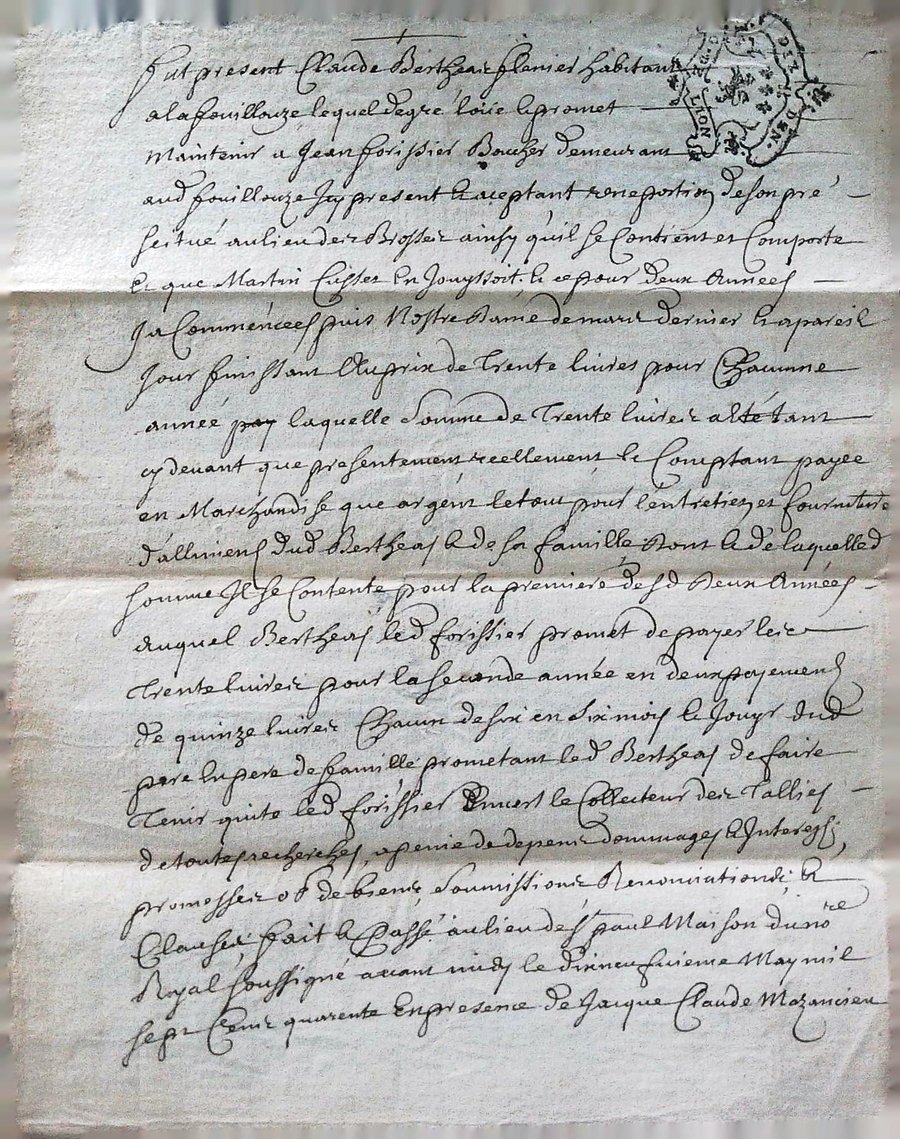 fut present Claude Bertheas habitant
a lafouillouze lequel degré loüe & promet
Maintenir a Jean forissier Boucher demeurant
aud fouillouze Icy present & aceptant une portion de son pré
scitué au lieu des Brosses ainsy quil se Contient et Comporte
& que Martin Cusset en Jouyssoit & ce pour deux Années
Ja Commencées puis Nostre Dame de mars dernier & a pareil
Jour finissant Au prix de Trente livres pour Chacunne
année laquelle Somme de Trente livres a tant
cy devant que presentement reellement & Comptant payée
en Marchandise que argent le tout pour l'entretien et fourniture
d'alliments dud Bertheas & de sa famille dont & de laquelle d
somme Il se Contente pour la premiere desd deux Années
auquel Bertheas led forissier promet de payer les
Trente livres pour la seconde année en deux payements
de quinze livres Chacun de six en six mois & Jouyr dud
pere de famille prometant led Bertheas de faire
Tenir quite led forissier Envers le Collecteur des Tallies
de toutes recherches, a peine de depens dommages & Interests,
promesses ob de biens, Soumissions Renonciations, &
Clauses, fait & Passé au lieu de St paul Maison du nore
Royal soussigné avant midy le dixneufvieme May mil
sept Cens quarente En presence de Jacque Claude Mazancieu
LION
GEN